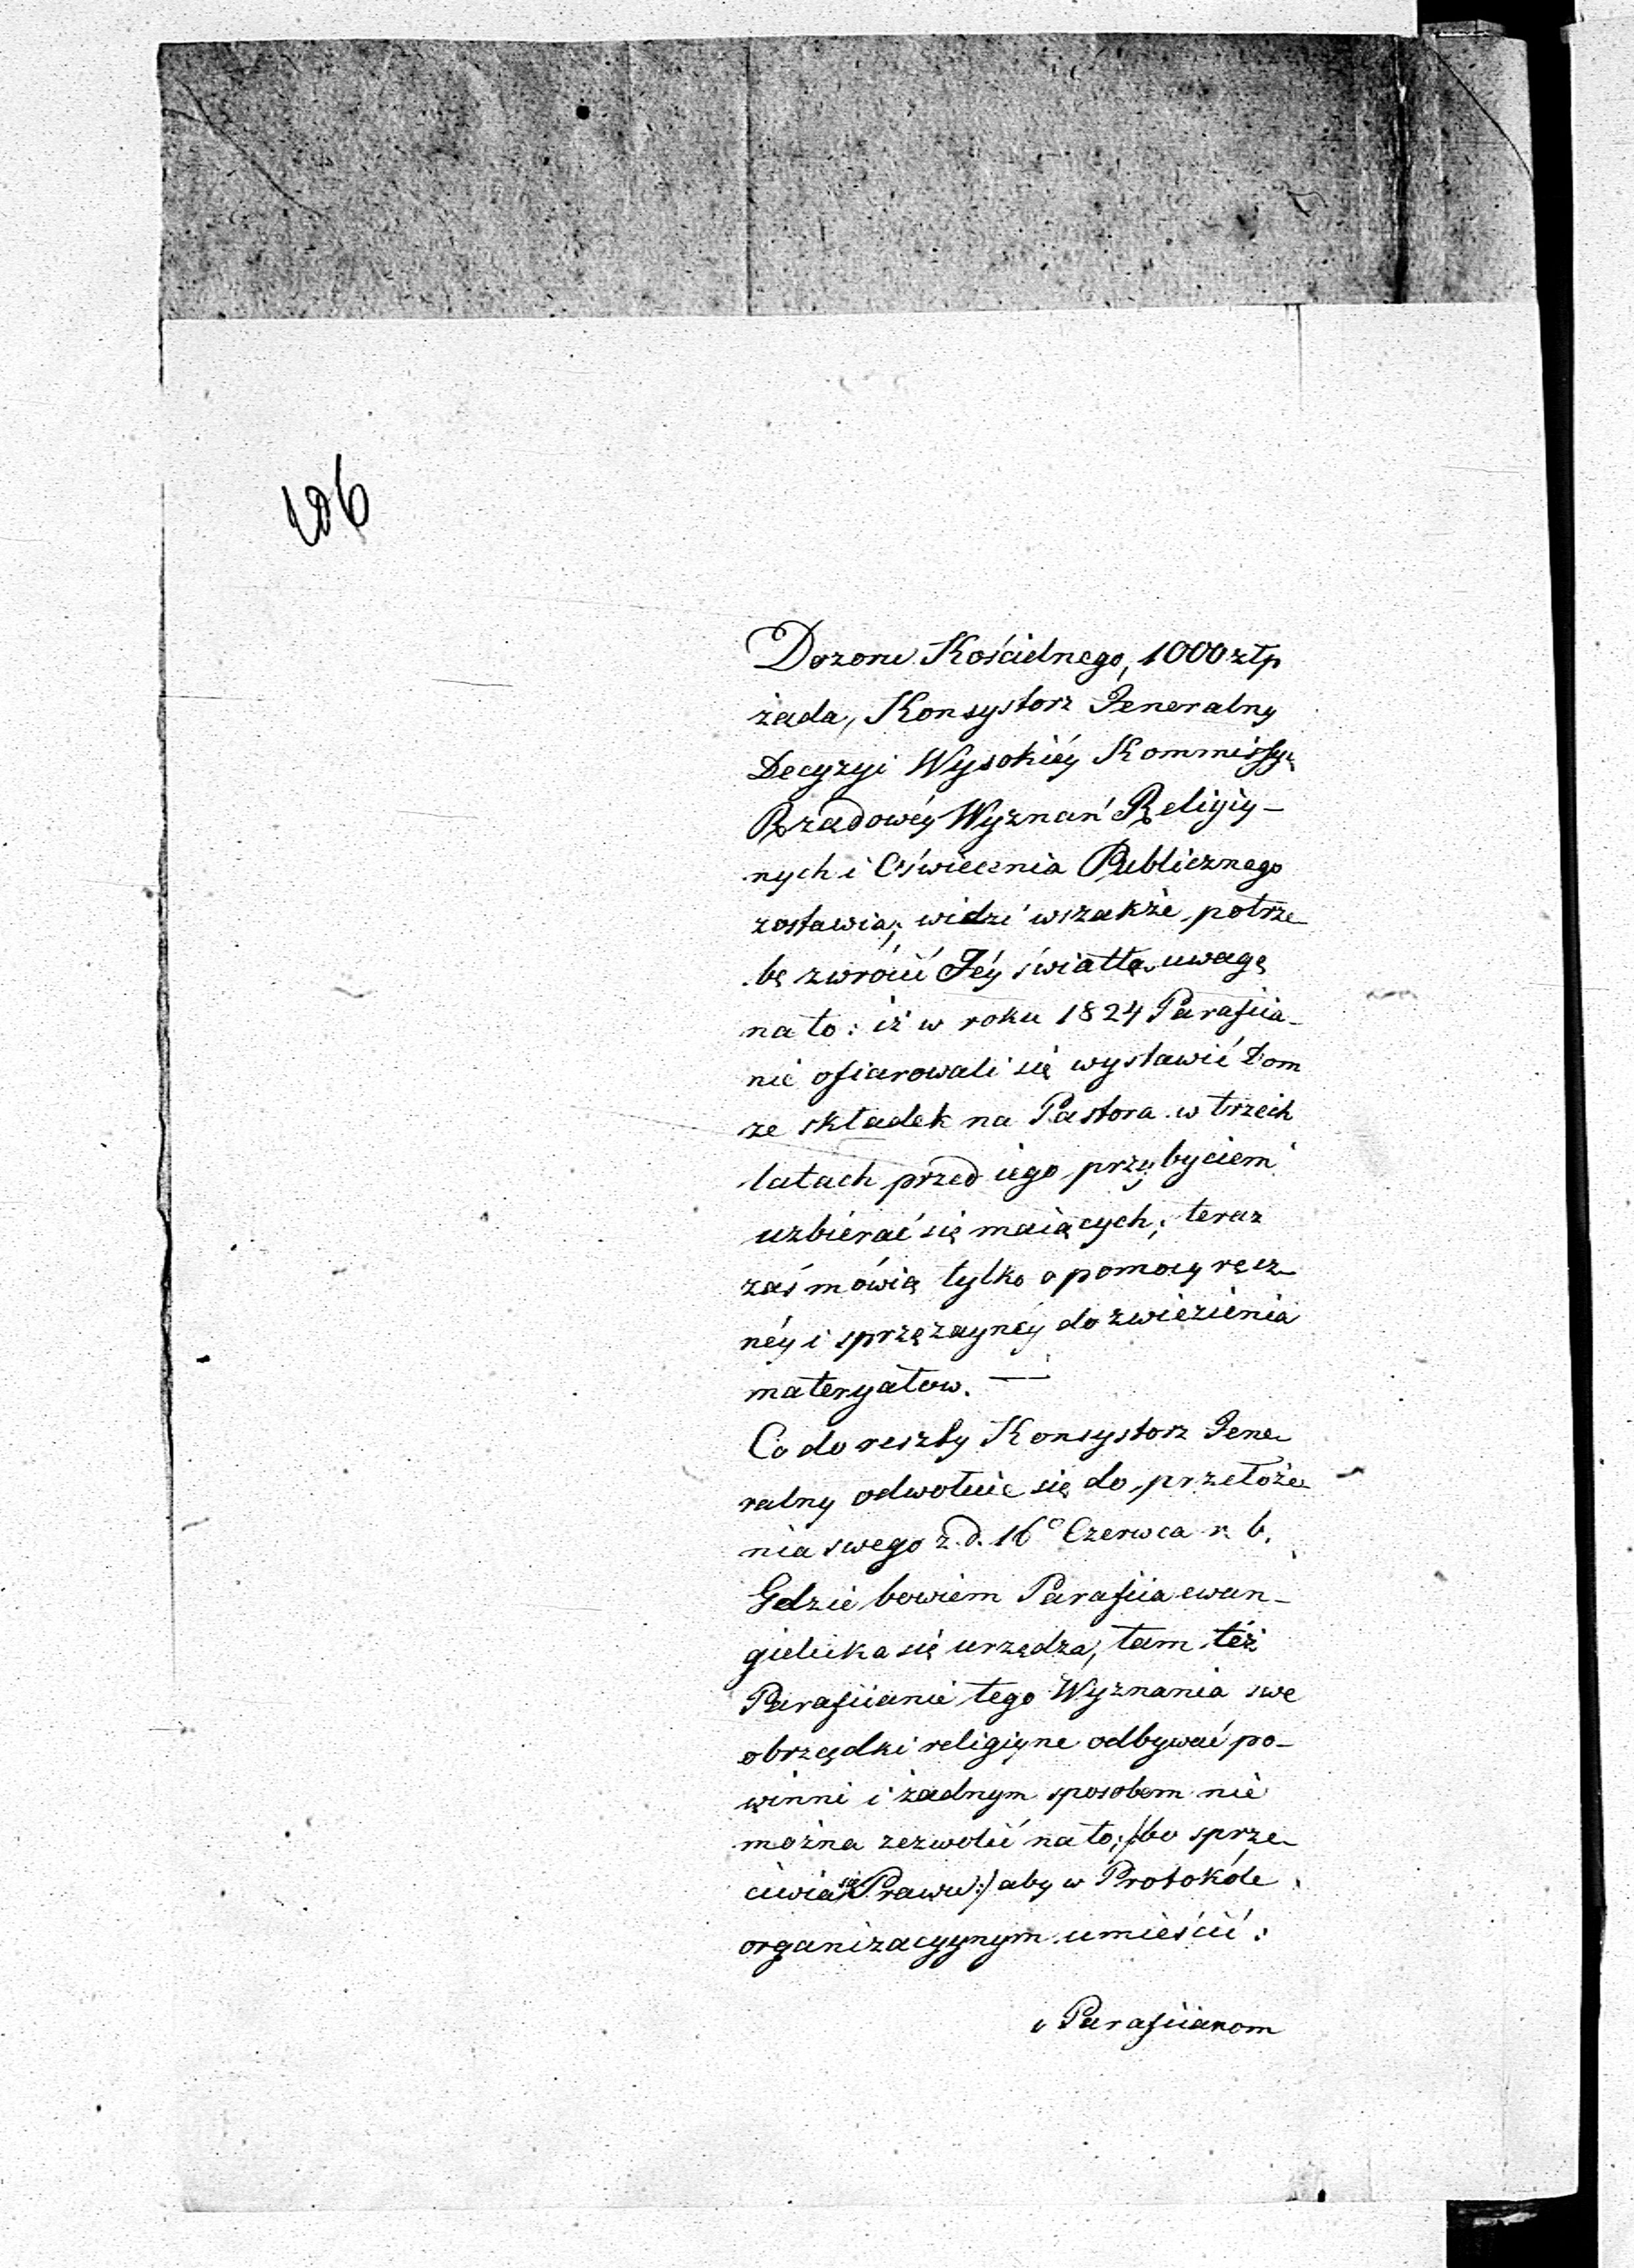 106
Dozoru Kościelnego, 1000 złp
żąda, Konsystorz Jeneralny
Decyzyi Wysokiéy Kommissyi
Rządowéy Wyznań Religiy-
nych i Oświecenia Publicznego
zostawia; widzi wszakże potrze-
bę zwrócić Jéy światłą uwagę
na to: iż w roku 1824 Parafiia-
nie ofiarowali się wystawić Dom
ze składek na Pastora w trzech
latach przed iego przybyciem
uzbierać się maiących; teraz
zaś mówią tylko o pomocy ręcz-
néy i sprzężaynéy do zwiezienia
materyałow. —
Co do reszty Konsystorz Jene-
ralny odwołuie się do przełoże-
nia swego z. d. 16º Czerwca r. b.
Gdzie bowiem Parafiia ewan-
gielicka się urządza, tam też
Parafiianie tego Wyznania swe
obrządki religiyne odbywać po-
winni i żadnym sposobem nie
można zezwolić na to, /:bo sprze-
ciwia się Prawu:/ aby w Protokóle
organizacyynym umieścić:
Parafiianom